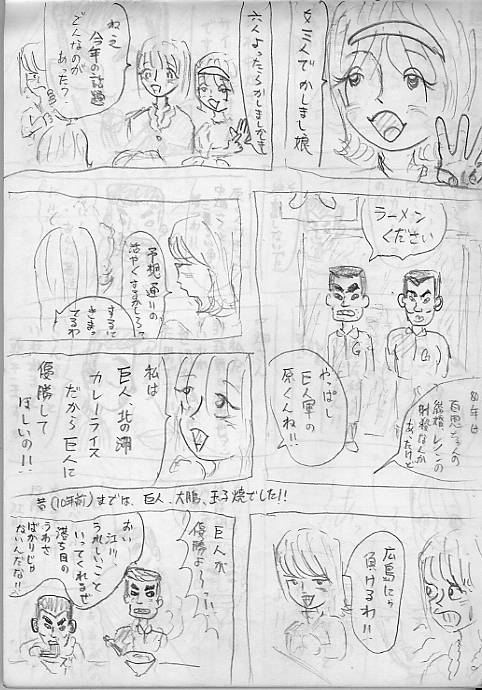 女三人でかしまし娘
六人よったらかしましかしまし
ねぇ
今年の話題
どんなのが
あった?
ラーメン
ください
80年は
百恵ちゃんの
結婚、レノンの
射殺なんか
あったけど
やっぱし
巨人軍の
原くんね!!
予想通りの
活やくするかしら?
するに
きまっ
てるわ
私は
巨人、北の湖
カレーライス
だから巨人に
優勝して
ほしいの!!
昔(10年前)までは、巨人、大鵬、玉子焼でした!!
広島にゃ
負けるわ!!
巨人が
優勝よ〜!!
おい
江川、
うれしいこと
いってくれるぜ
落ち目の
うわさ
ばかりじゃ
ないんだな!!
G
G